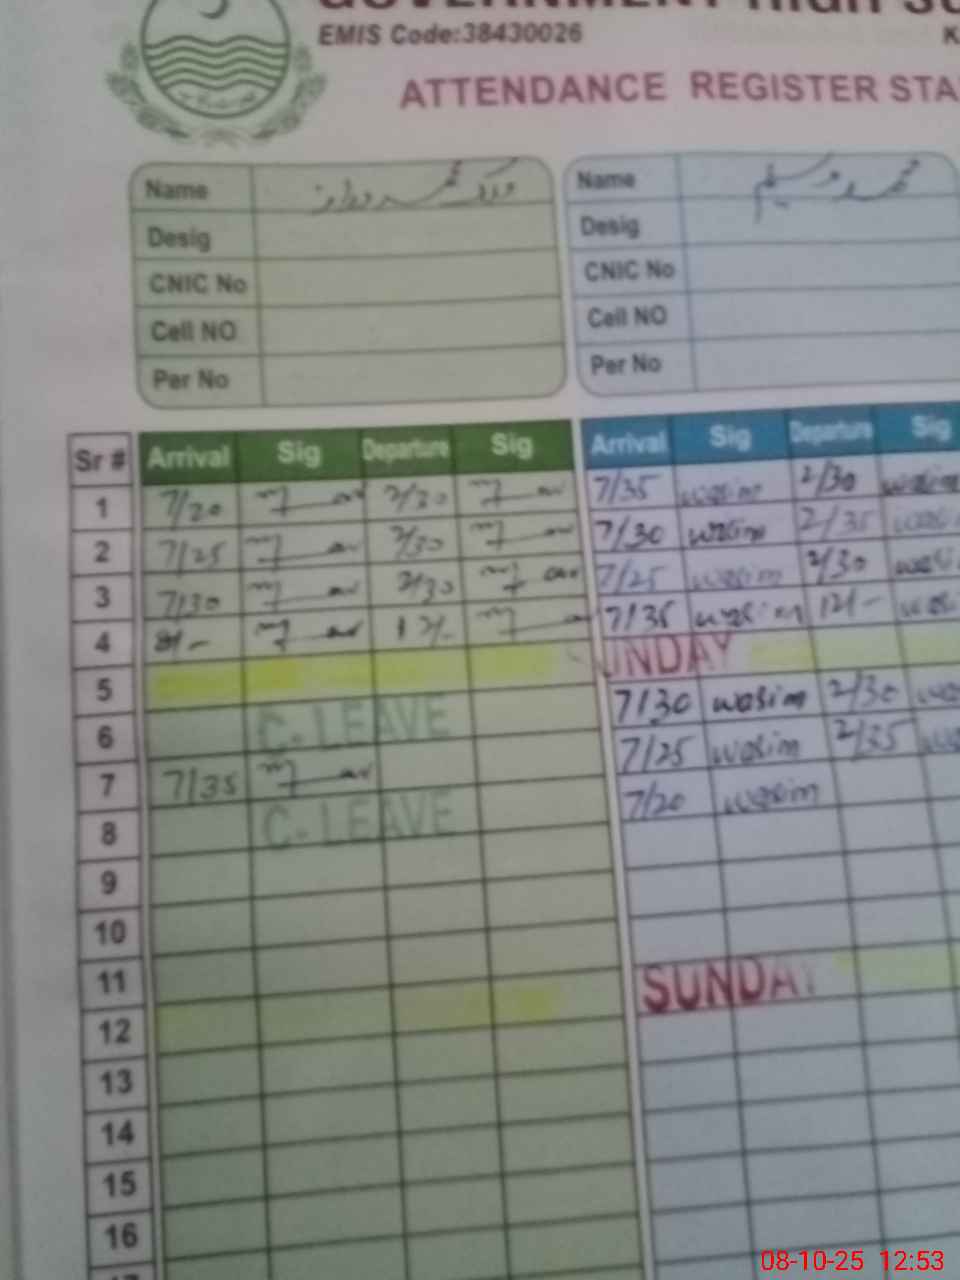 EMIS Code:38430026
ATTENDANCE REGISTER
Name
Name محمد وسیم
Desig
Desig
CNIC No
CNIC No
Cell NO
Cell NO
Per No
Per No
Sr # Arrival Sig Departure Sig Arrival Sig Departure Sig
1 7/20 2/30 7/35 wasim 2/30 wasim
2 7/25 2/30 7/30 wasim 2/35
3 7/30 2/30 7/25 wasim 2/30
4 8/- 12/- 7/35 wasim 12/-
5 SUNDAY
6 C. LEAVE 7/30 wasim 2/30
7 7/35 7/25 wasim 2/35
8 C. LEAVE 7/20 wasim
9
10
11
12 SUNDAY
13
14
15
16
08-10-25 12:53